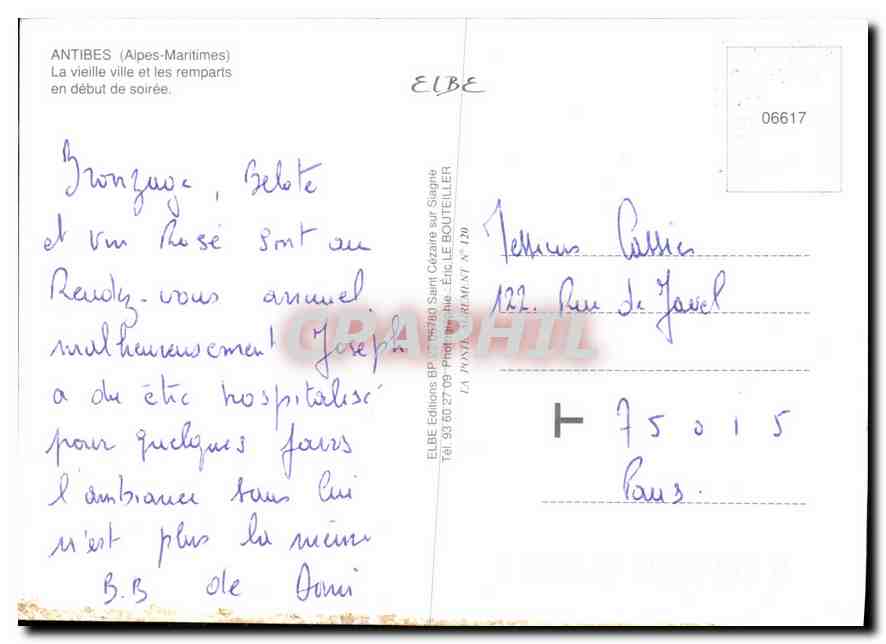 ANTIBES (Alpes-Maritimes)
La vieille ville et les remparts
en début de soirée.
ELBE
06617
Bronzage, Belote
et vin Rosé sont au
Rendez-vous annuel
malheureusement Joseph
a du être hospitalisé
pour quelques jours
l'ambiance sans lui
n'est plus la même
B.B de Domi
ELBE Editions BP 06780 Saint Cézaire sur Siagne
Tél. 93 60 27 09 Photographie : Éric LE BOUTEILLER
LA POSTE AGREMENT N° 120
CPAPHIL
122. Rue de Javel
T 75015
Paris.